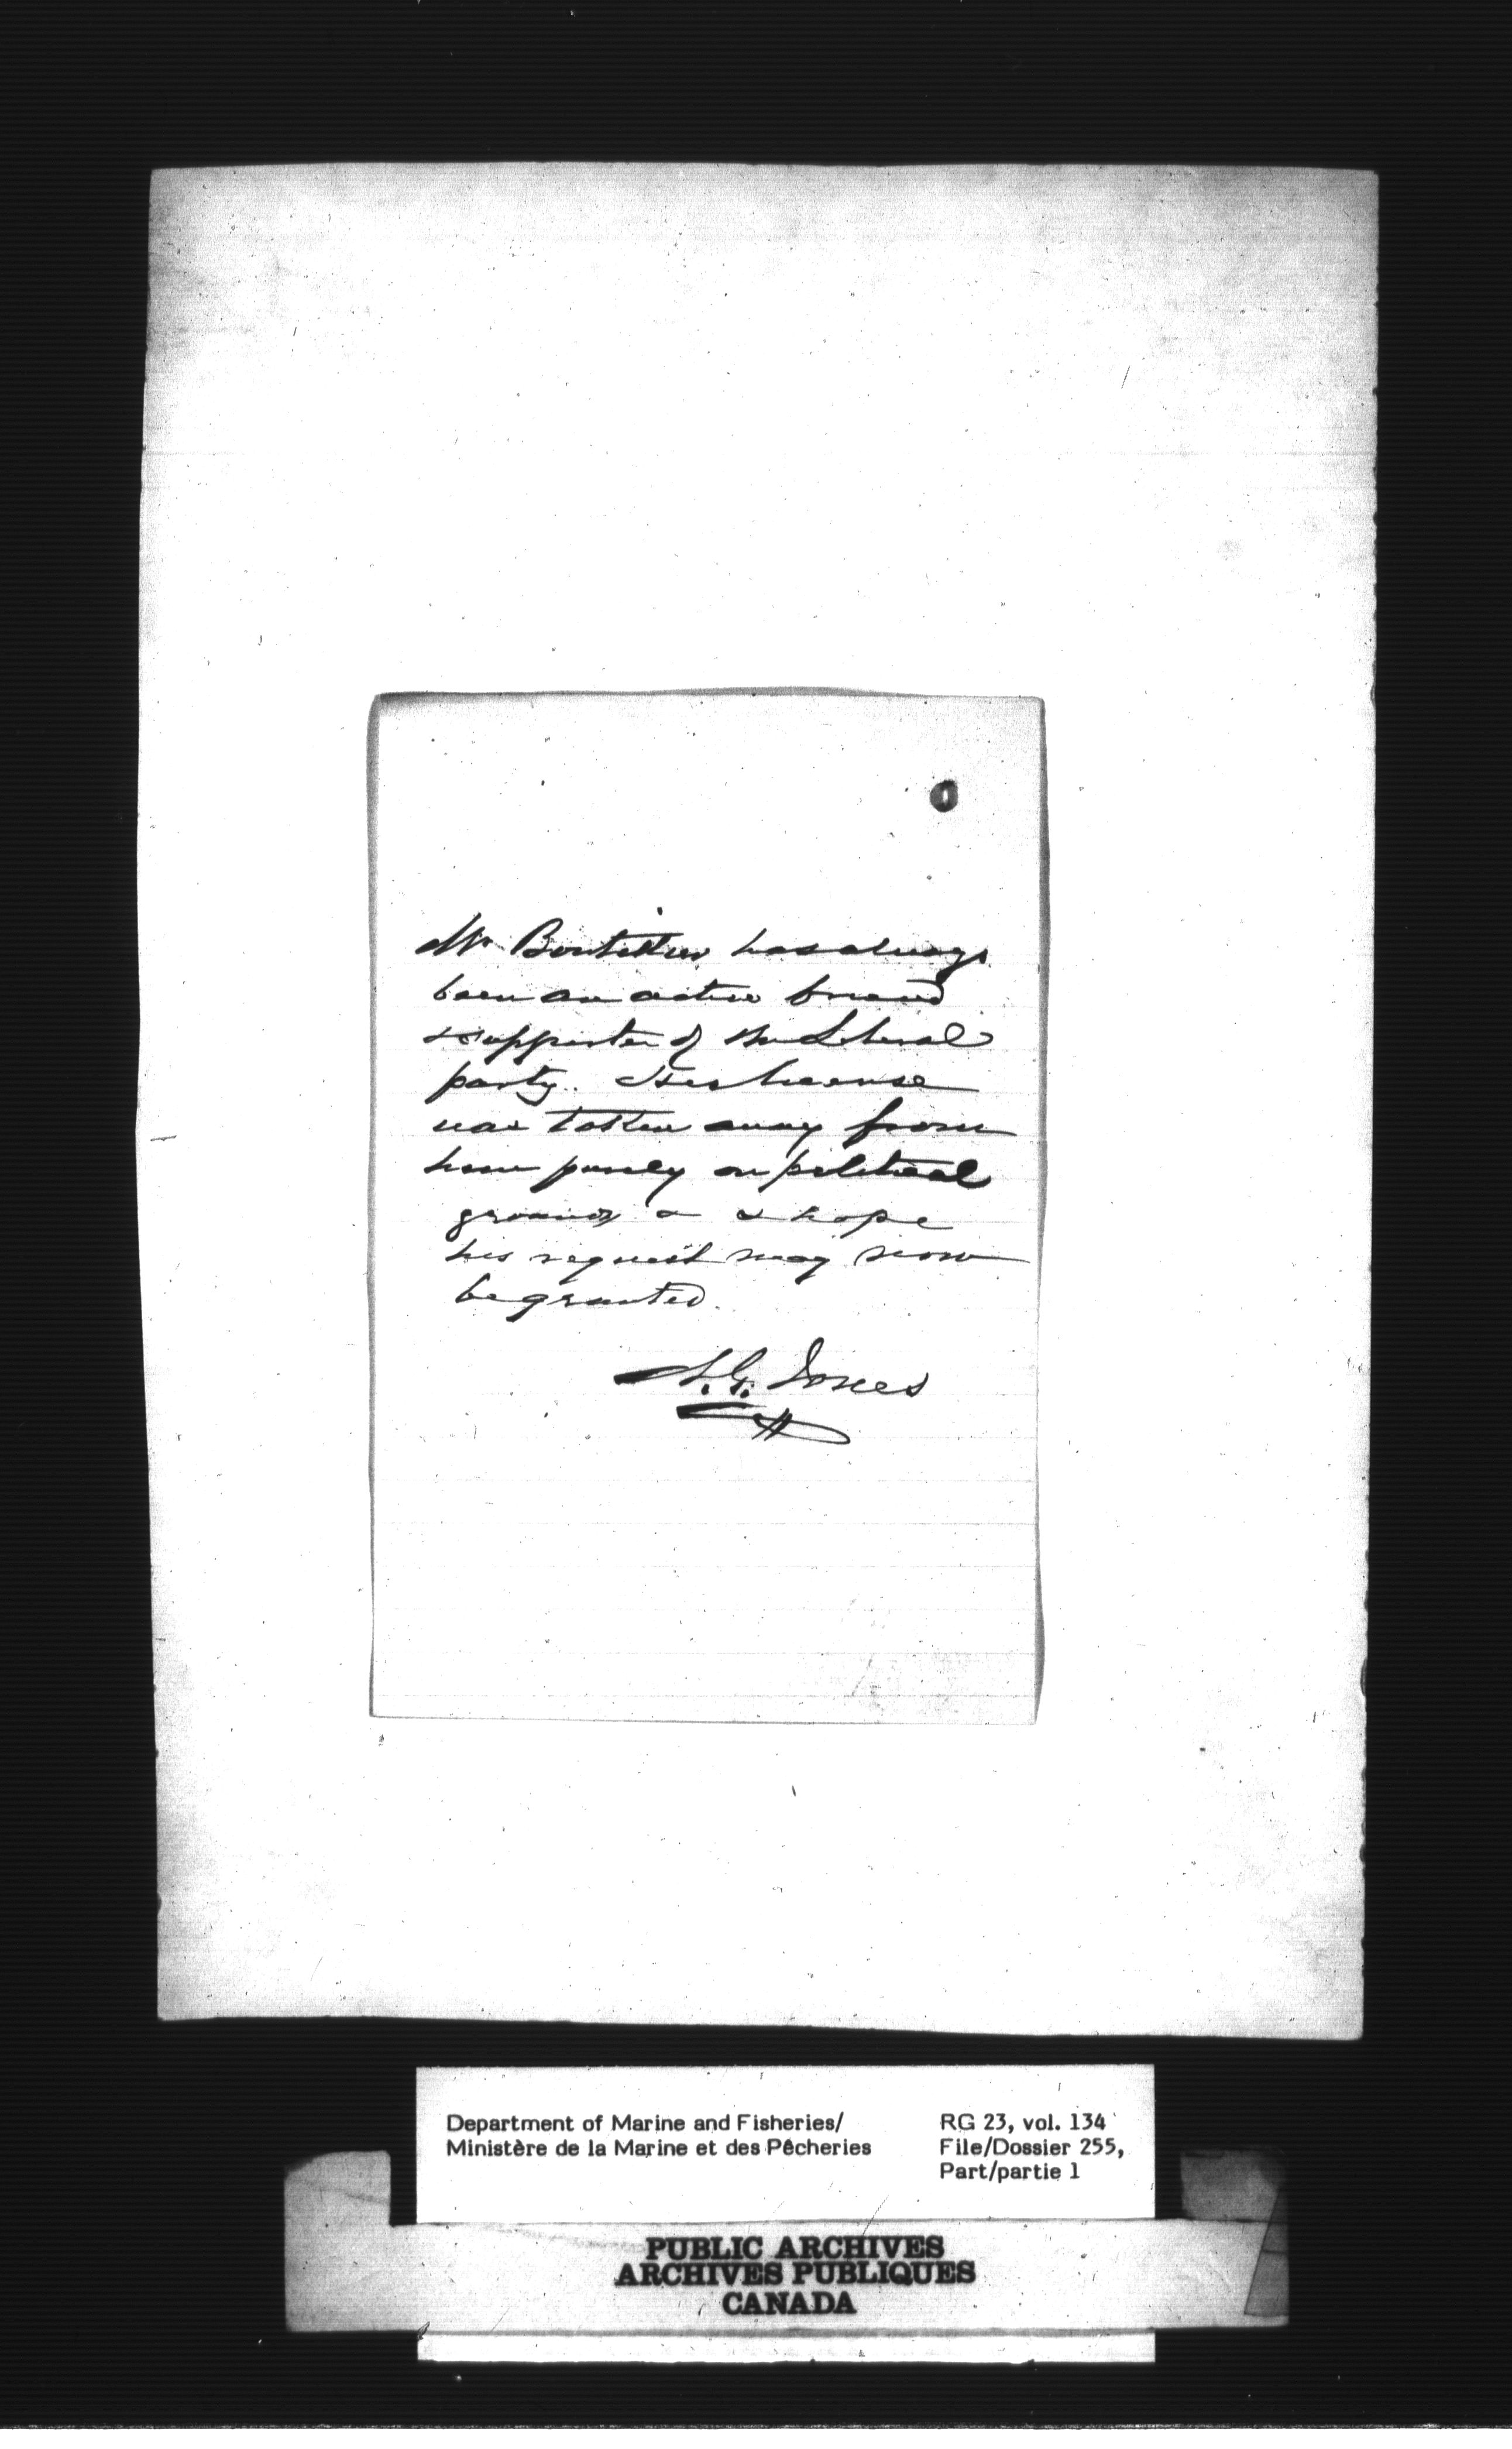 Mr Boutilier has always
been an active friend
& supporter of the Liberal
party. His license
was taken away from
him purely on political
grounds & I hope
his request may now
be granted.
A. G. Jones
Department of Marine and Fisheries/
Ministère de la Marine et des Pêcheries
RG 23, vol. 134
File/Dossier 255,
Part/partie 1
PUBLIC ARCHIVES
ARCHIVES PUBLIQUES
CANADA